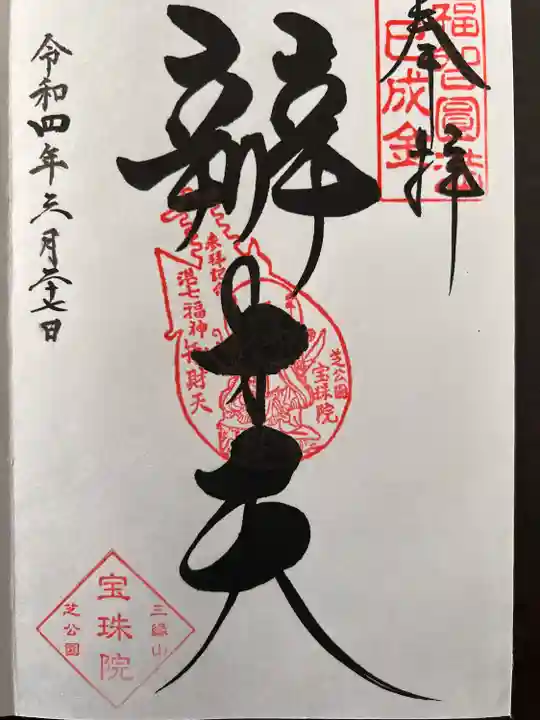 奉拝
福智圓満
巳成金
辯才天
参拝記念
港七福神
弁財天
芝公園
宝珠院
令和四年三月二十七日
三縁山
宝珠院
芝公園